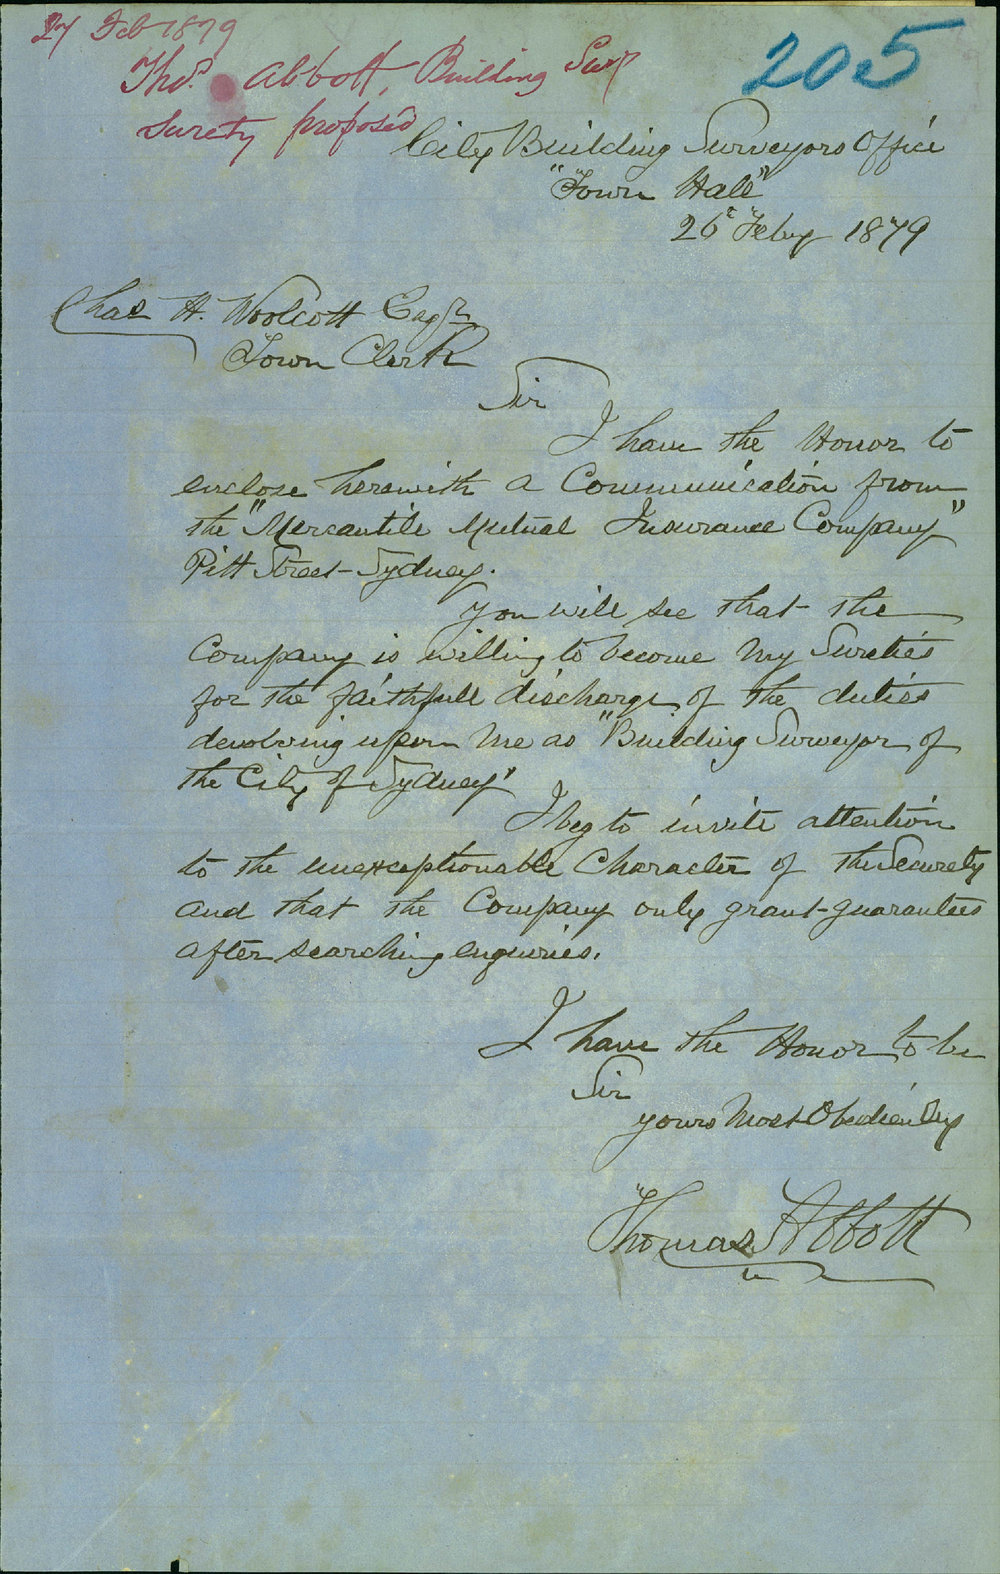 27 Feb 1879
Thos. Abbott, Building Surv
surety proposed
205
City Building Surveyors Office
"Town Hall"
26th Feby 1879
Chas H. Woolcott Esqr
Town Clerk
Sir
I have the Honor to
enclose herewith a Communication from
the "Mercantile Mutual Insurance Company"
Pitt Street - Sydney.
You will see that the
Company is willing to become My Sureties
for the faithfull discharge of the duties
devolving upon Me as "Building Surveyor of
the City of Sydney"
I beg to invite attention
to the unexceptionable Character of the Security
and that the Company only grant guarantees
after searching enquiries.
I have the Honor to be
Sir
yours Most Obediently
Thomas Abbott